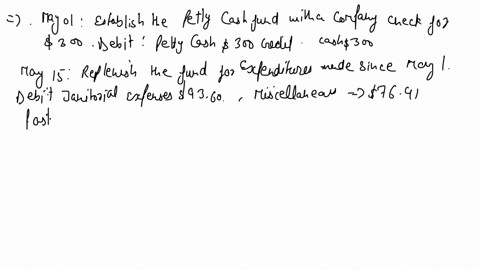 =). May 01: Establish the Petty Cash fund with a Company check for
$300. Debit: Petty Cash $300 credit. cash $300
May 15: Replenish the fund for Expenditures made since May 1.
Debit Janitorial expenses $93.60, Miscellaneous => $76.91
Post